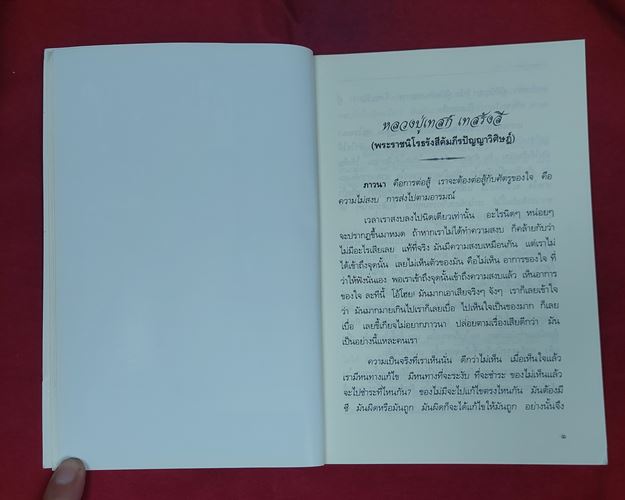 หลวงปู่เทสก์ เทสรังสี
(พระราชนิโรธรังสีคัมภีรปัญญาวิศิษฏ์)
ภาวนา คือการต่อสู้ เราจะต้องต่อสู้กับศัตรูของใจ คือ
ความไม่สงบ การส่งไปตามอารมณ์
เวลาเราสงบลงไปนิดเดียวเท่านั้น อะไรนิดๆ หน่อยๆ
จะปรากฏขึ้นมาหมด ถ้าหากเราไม่ได้ทำความสงบ ก็คล้ายกับว่า
ไม่มีอะไรเสียเลย แท้ที่จริง มันมีความสงบเหมือนกัน แต่เราไม่
ได้เข้าถึงจุดนั้น เลยไม่เห็นตัวของมัน คือไม่เห็น อาการของใจ ที่
ว่าให้ฟังนั่นเอง พอเราเข้าถึงจุดนั้นเข้าถึงความสงบแล้ว เห็นอาการ
ของใจ ละทีนี้ โอ้โฮย! มันมากเอาเสียจริงๆ จังๆ เราก็เลยเข้าใจ
ว่า มันมากมายเกินไปเราก็เลยเบื่อ ไปเห็นใจเป็นของมาก ก็เลย
เบื่อ เลยขี้เกียจไม่อยากภาวนา ปล่อยตามเรื่องเสียดีกว่า มัน
เป็นอย่างนี้แหละคนเรา
ความเป็นจริงที่เราเห็นนั้น ดีกว่าไม่เห็น เมื่อเห็นใจแล้ว
เรามีหนทางแก้ไข มีหนทางที่จะระงับ ที่จะชำระ ของไม่เห็นแล้ว
จะไปชำระที่ไหนกัน? ของไม่มีจะไปแก้ไขตรงไหนกัน มันต้องมี
ซี มันผิดหรือมันถูก มันผิดก็จะได้แก้ไขให้มันถูก อย่างนั้นจึง